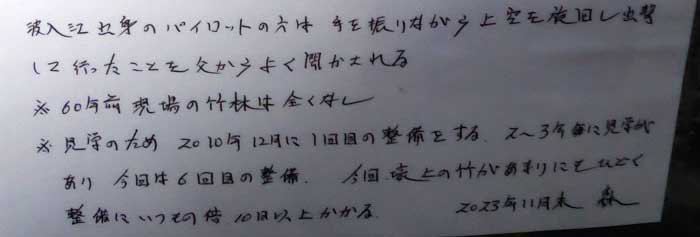 波入江出身のパイロットの方は 手を振りながら上空を旋回し出撃
して行ったことを父からよく聞かされる
※ 60年前 現場の竹林は全くなし
※ 見学のため 2010年12月に1回目の整備をする、2〜3年毎に見学が
あり 今回は6回目の整備、今回 壕上の竹があまりにもひどく
整備にいつもの倍 10日以上かかる、 2023年11月末 森